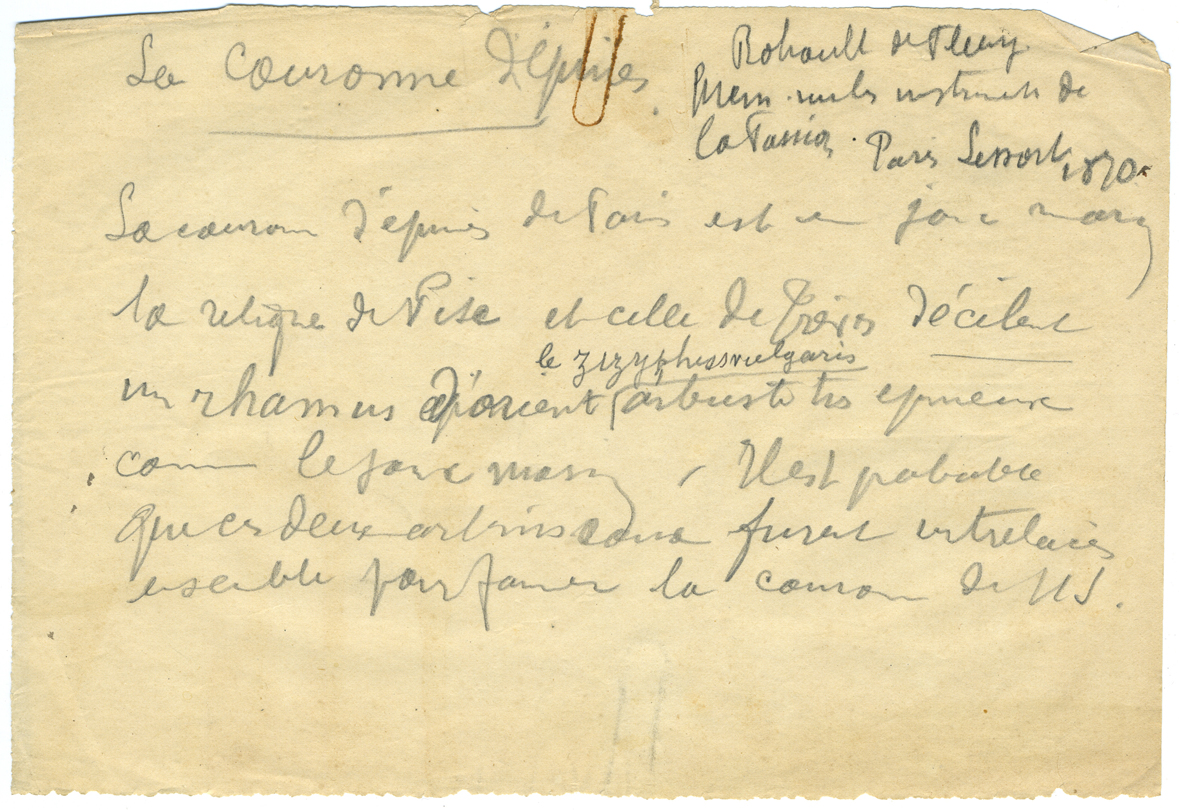 La Couronne D'épines.
Rohault de Fleury
Mem. sur les instruments de
la Passion. Paris Lesort, 1870.
La couronne d'épines de Paris est en jonc marin
la relique de Pise et celle de Trèves décèlent
le zizyphus vulgaris
un rhamnus d'orient (arbuste très epineux
comme le jonc marin, Il est probable
que ces deux arbrisseaux furent entrelacés
ensemble pour former la couronne de NS.